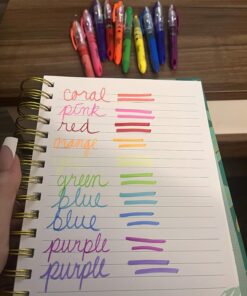 coral
pink
red
orange
green
blue
blue
purple
purple